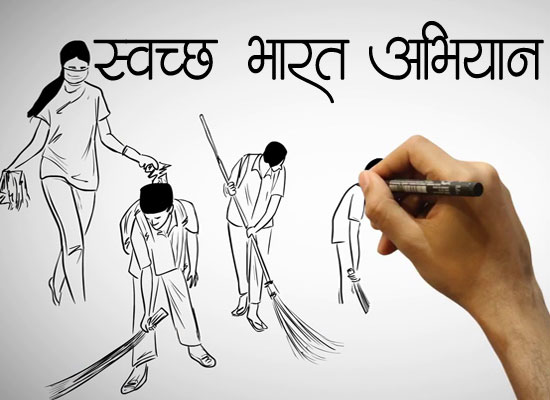 स्वच्छ भारत अभियान